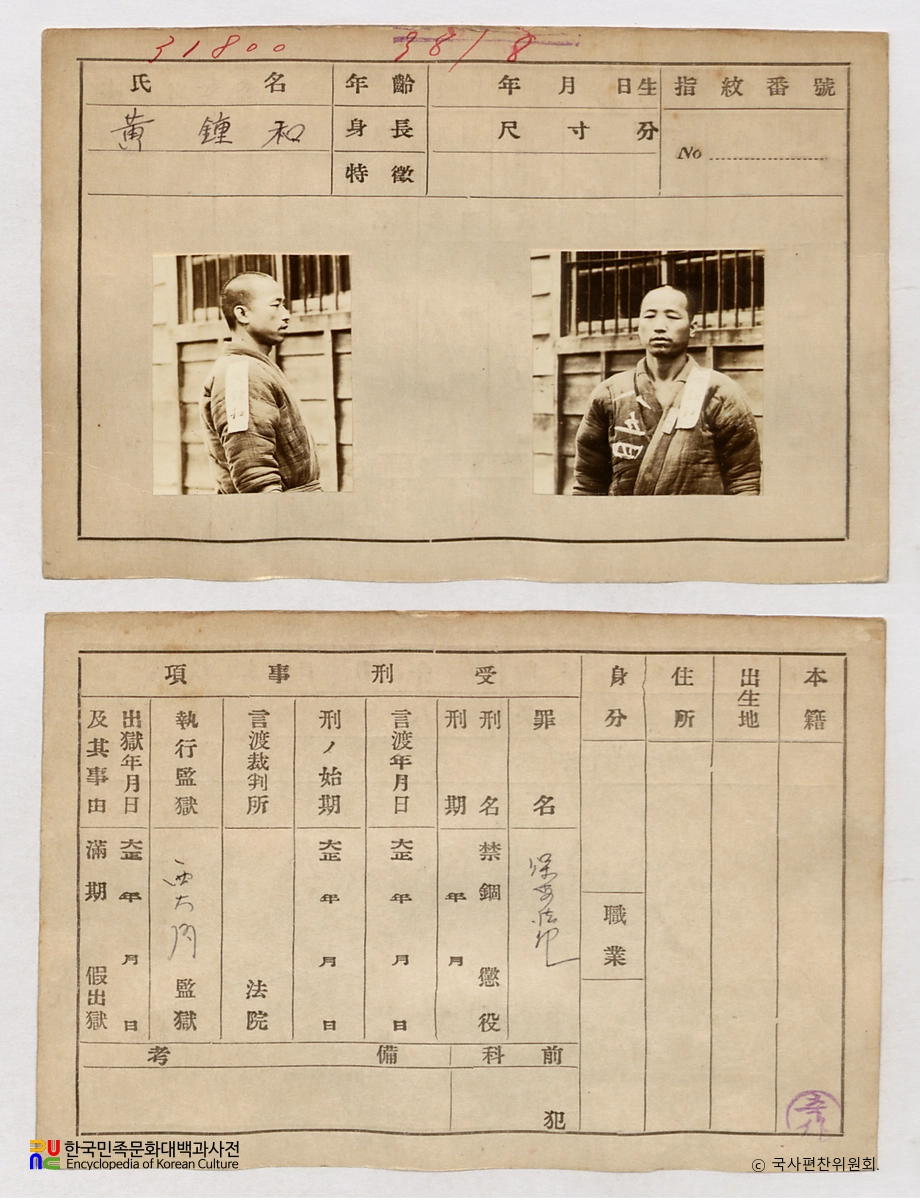 31800
38/8
氏名
黃鍾和
年齡
年月日生
身長
尺寸分
特徵
指紋番號
No
本籍
出生地
住所
身分
職業
受刑事項
罪名
保安法犯
刑名
禁錮 懲役
刑期
年月
言渡年月日
大正年月日
刑ノ始期
大正年月日
言渡裁判所
法院
執行監獄
西大門監獄
出獄年月日
及其事由
大正年月日
滿期 假出獄
前科
犯
備考
한국민족문화대백과사전
Encyclopedia of Korean Culture
© 국사편찬위원회.